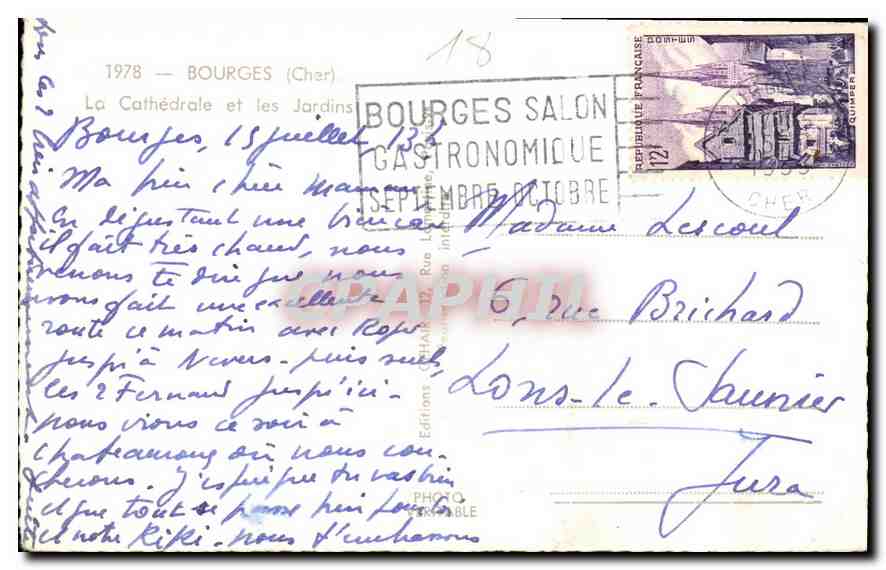 18
1978 — BOURGES (Cher)
La Cathédrale et les Jardins
BOURGES SALON
GASTRONOMIQUE
SEPTEMBRE OCTOBRE
POSTES
REPUBLIQUE FRANÇAISE
12F
QUIMPER
CHER
Bourges, 15 juillet 13h
Ma bien chère Maman
En dégustant une
il fait très chaud, nous
venons te dire que nous
avons fait une excellente
route ce matin avec Roger
jusqu'à Nevers - puis seuls,
les 2 Fernand jusqu'ici -
nous irons ce soir à
Chateauroux où nous cou-
cherons. J'espère que tu vas bien
et que tout se passe bien pour toi
et notre Kiki - nous t'embrassons
tous les 2 bien affectueusement -
Editions CHAIX 12, Rue Lamartine,
Reproduction interdite
PHOTO
VERITABLE
CPAPHIL
Madame Lescoul
6, rue Brichard
Lons-le-Saunier
Jura